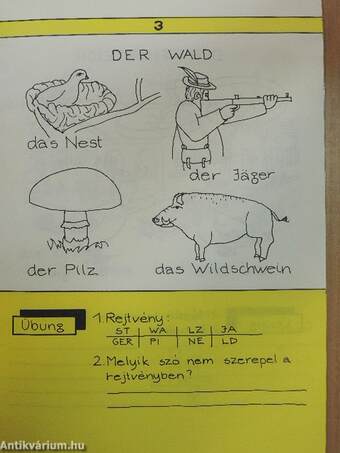 3
DER WALD
das Nest
der Jäger
der Pilz
das Wildschwein
Übung
1. Rejtvény:
ST WA LZ JA
GER PI NE LD
2. Melyik szó nem szerepel a
rejtvényben?
Antikvárium.hu